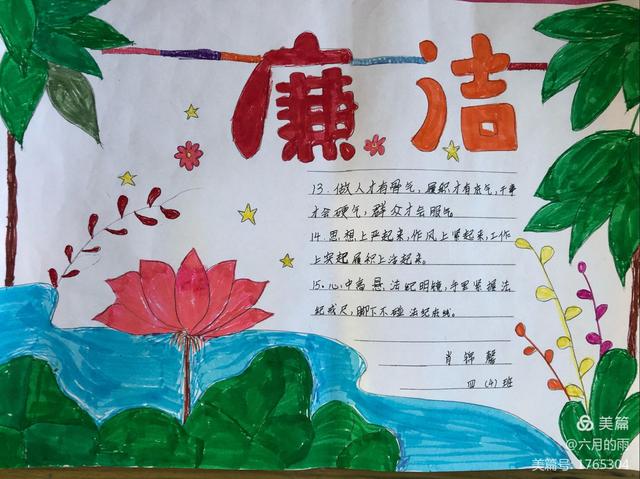 廉洁
13.做人才有骨气,履积才有底气,干事
才会硬气,群众才会服气。
14.思想上严起来,作风上紧起来,工作
上实起履积上活起来。
15.心中高悬法纪明镜,手里紧握法
纪戒尺,脚下不碰法纪底线。
肖锦馨
四(4)班
美篇
@六月的雨
美篇号:1765304